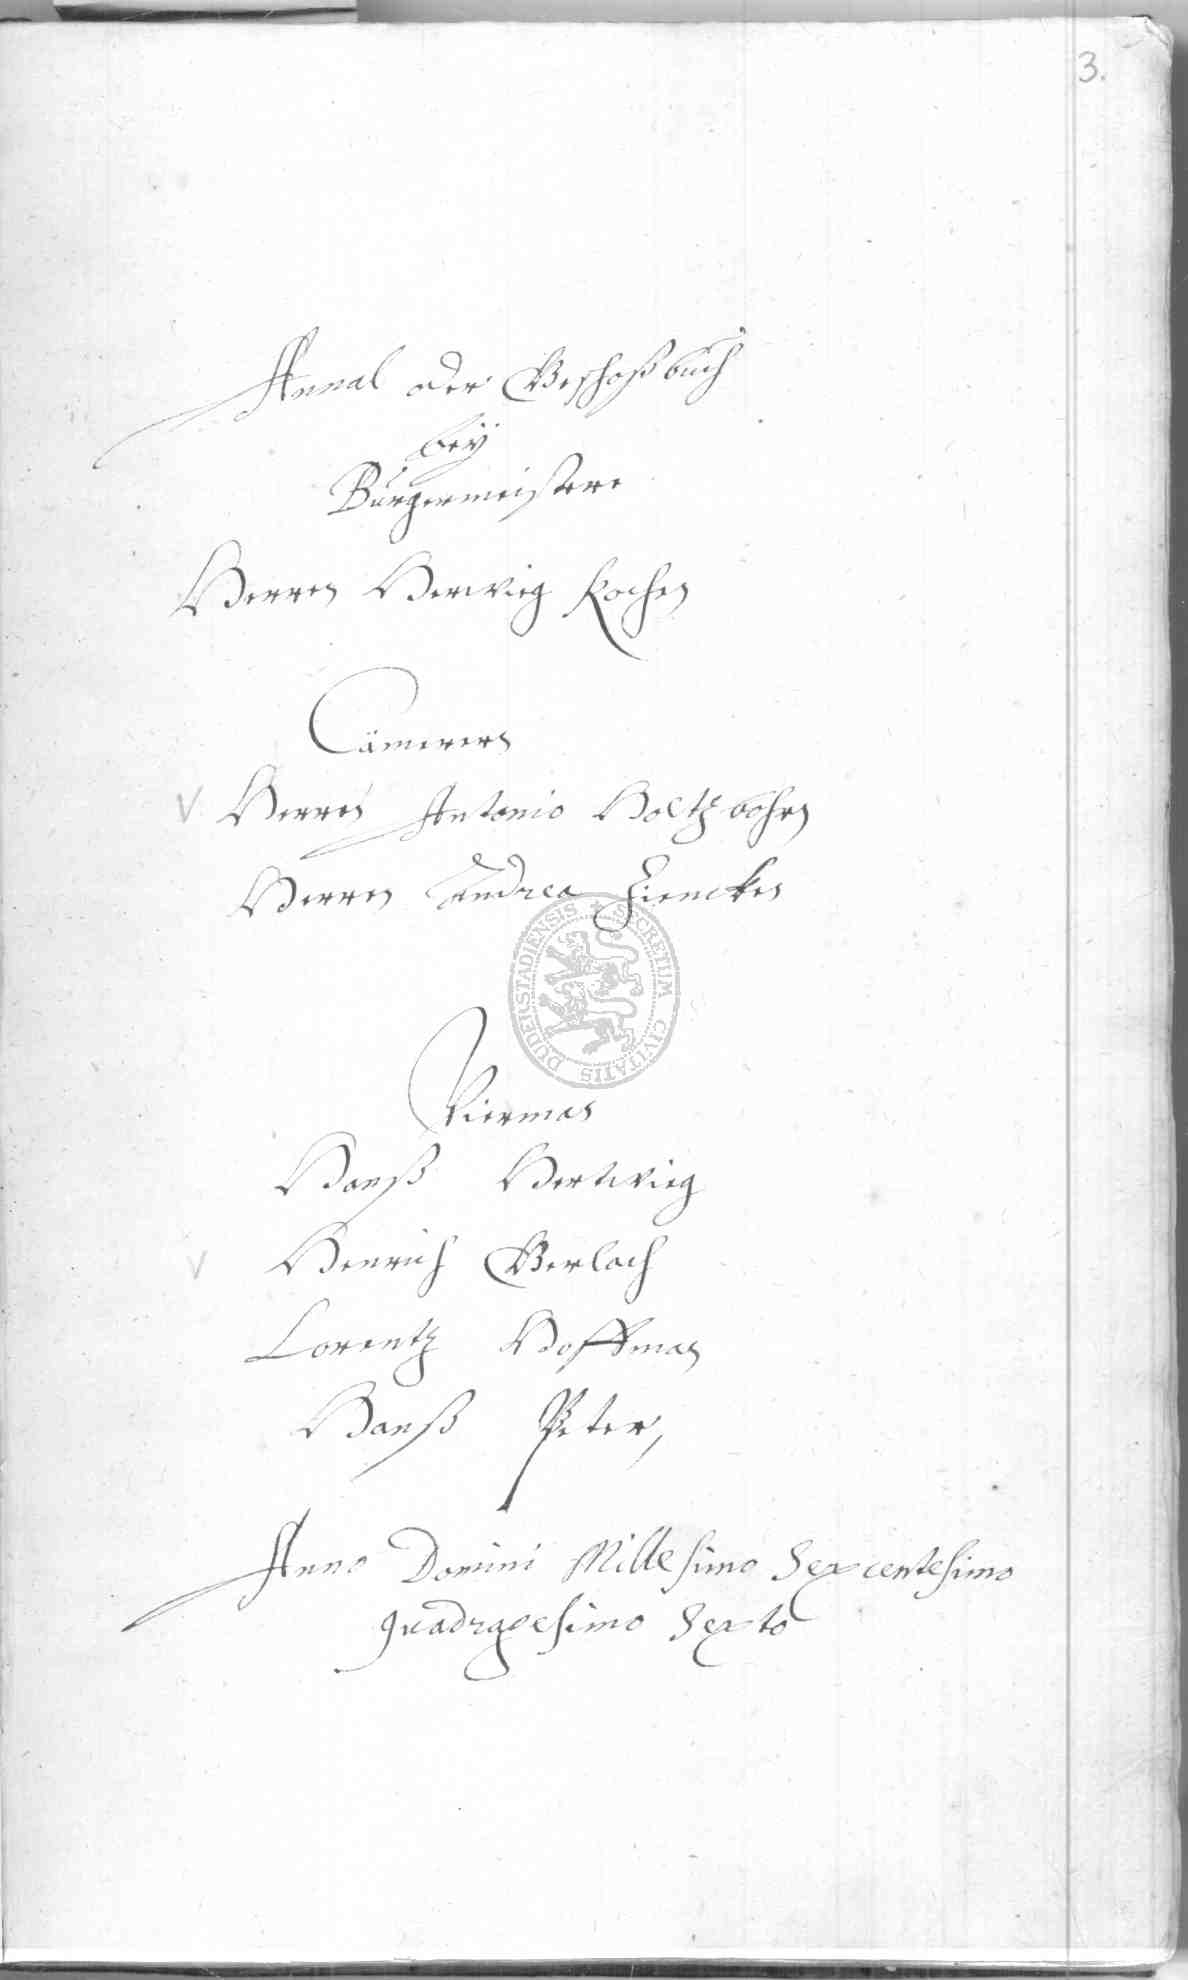 3.
Annal oder Geschoßbuch
beÿ
Burgermeistere
Herren Herwig Kochen
Cämerern
V Herren Antonio Holtzbohrn
Herren Andrea Ziencken
SECRETUM CIVITATIS DUDERSTADIENSIS
Vierman
Hanß Hertwieg
V Henrich Gerlach
Lorentz Hoffman
Hanß Peter,
Anno Domini Millesimo Sexcentesimo
quadragesimo Sexto